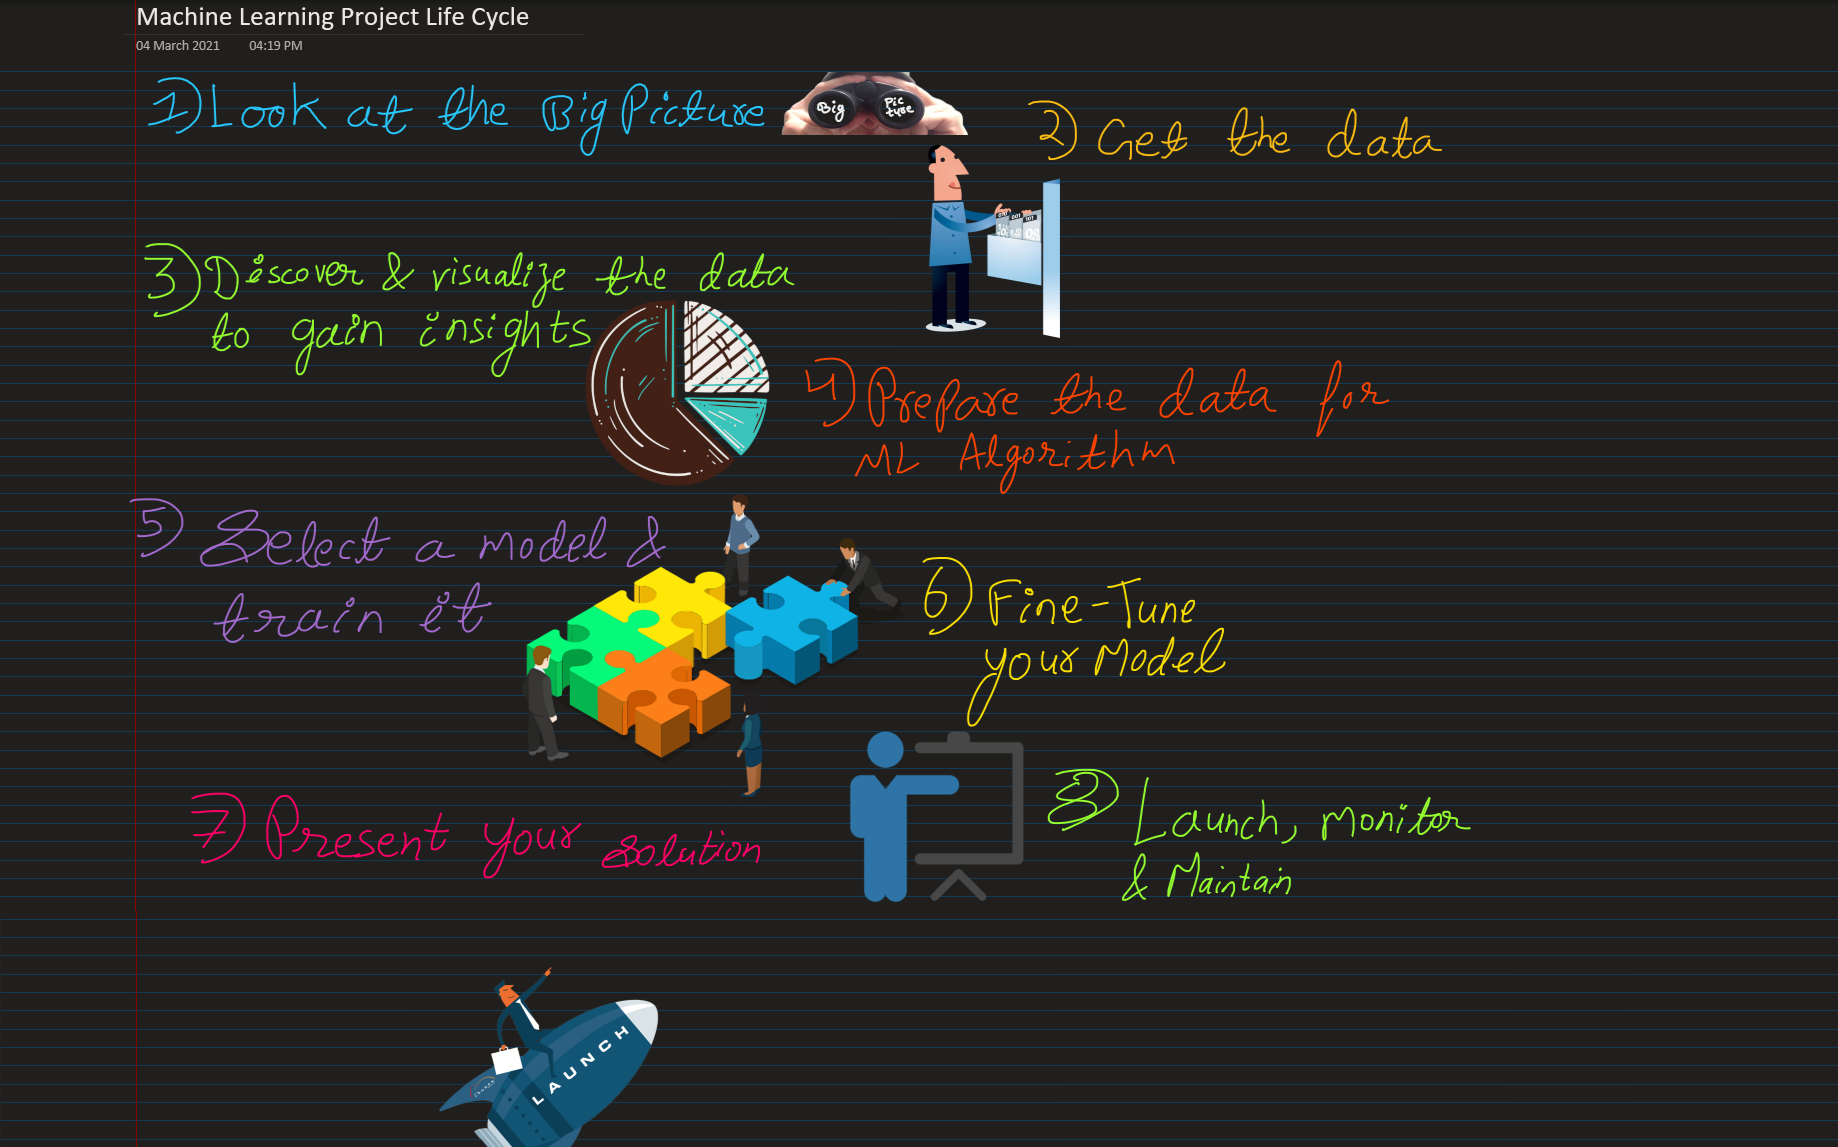 Machine Learning Project Life Cycle
04 March 2021 04:19 PM
1) Look at the Big Picture
Big Picture
2) Get the data
3) Discover & visualize the data
to gain insights
4) Prepare the data for
ML Algorithm
5) Select a model &
train it
6) Fine-Tune
your Model
7) Present your solution
8) Launch, Monitor
& Maintain
LAUNCH